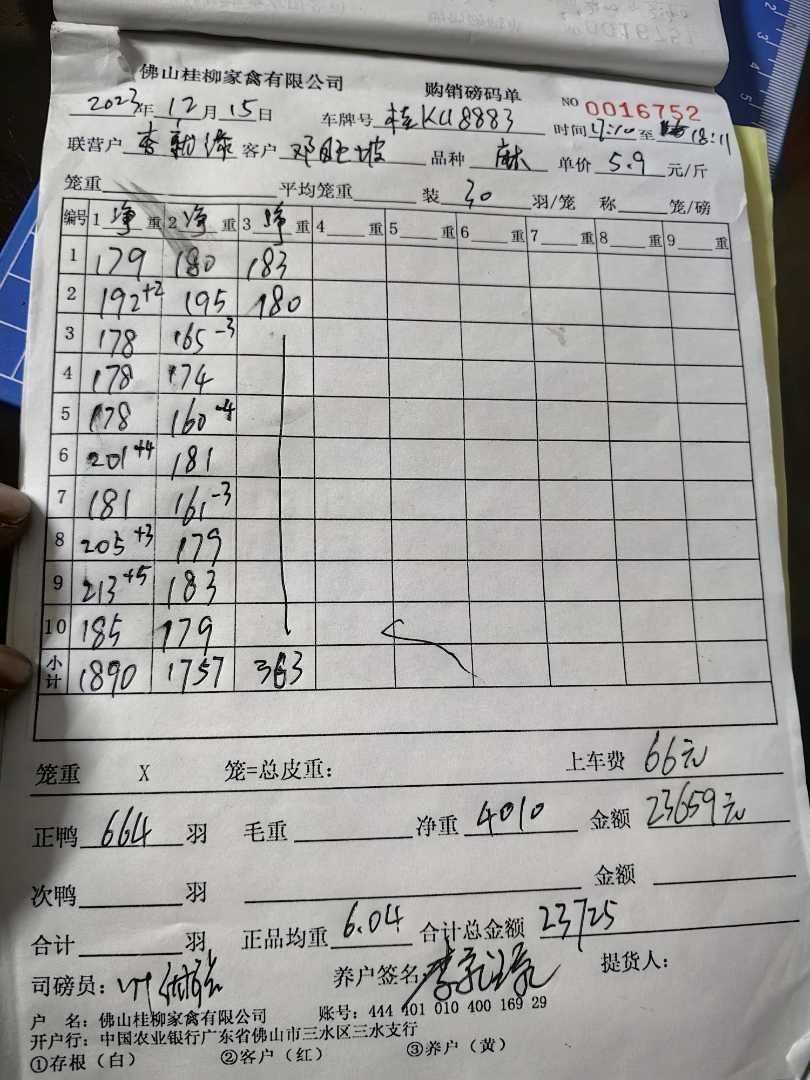 佛山桂柳家禽有限公司 购销磅码单 NO 0016752
2023年12月15日 车牌号 桂KU8883 时间17:10至18:11
联营户 李 客户 邓 坡 品种 麻 单价 5.9 元/斤
笼重 平均笼重 装 30 羽/笼 称 笼/磅
编号 1 净 重 2 净 重 3 净 重 4 重 5 重 6 重 7 重 8 重 9 重
1 179 180 183
2 192+2 195 180
3 178 165-3
4 178 174
5 178 160-4
6 201+4 181
7 181 161-3
8 205+3 179
9 213+5 183
10 185 179
小计 1890 1757 363
笼重 X 笼=总皮重: 上车费 66元
正鸭 664 羽 毛重 净重 4010 金额 23659元
次鸭 羽 金额
合计 羽 正品均重 6.04 合计总金额 23725
司磅员: 养户签名 李 提货人:
户 名: 佛山桂柳家禽有限公司 账号: 444 401 010 400 169 29
开户行: 中国农业银行广东省佛山市三水区三水支行
①存根(白) ②客户(红) ③养户(黄)